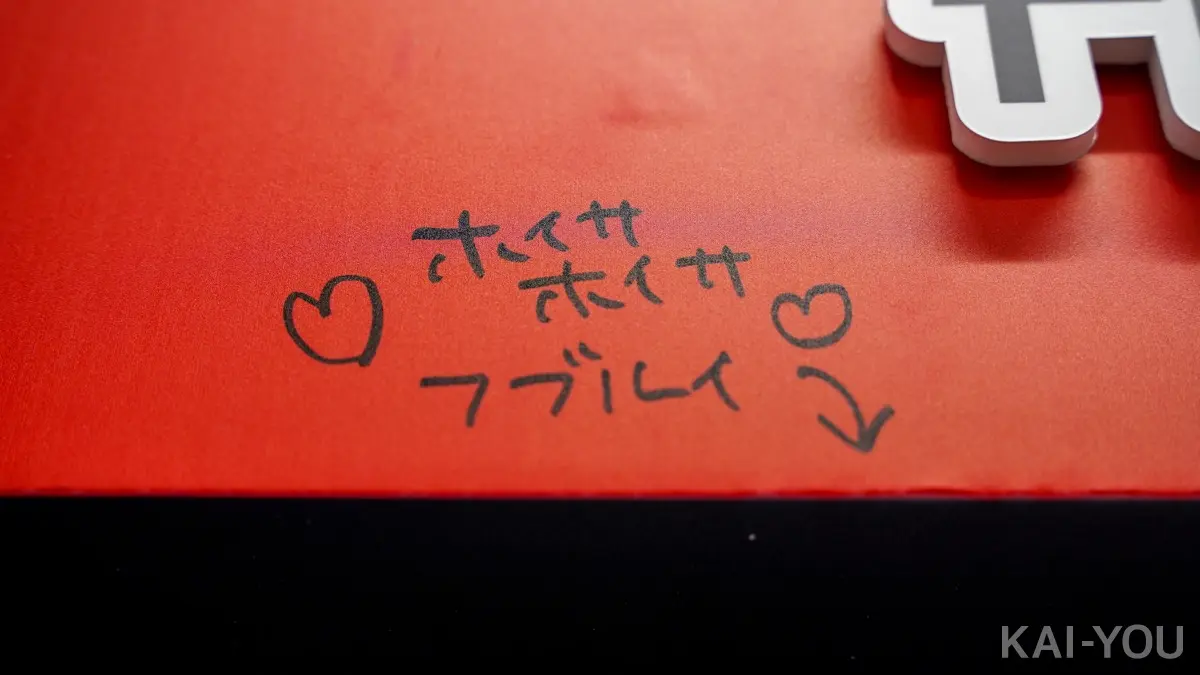 ホイサ
ホイサ
フブルイ
KAI-YOU